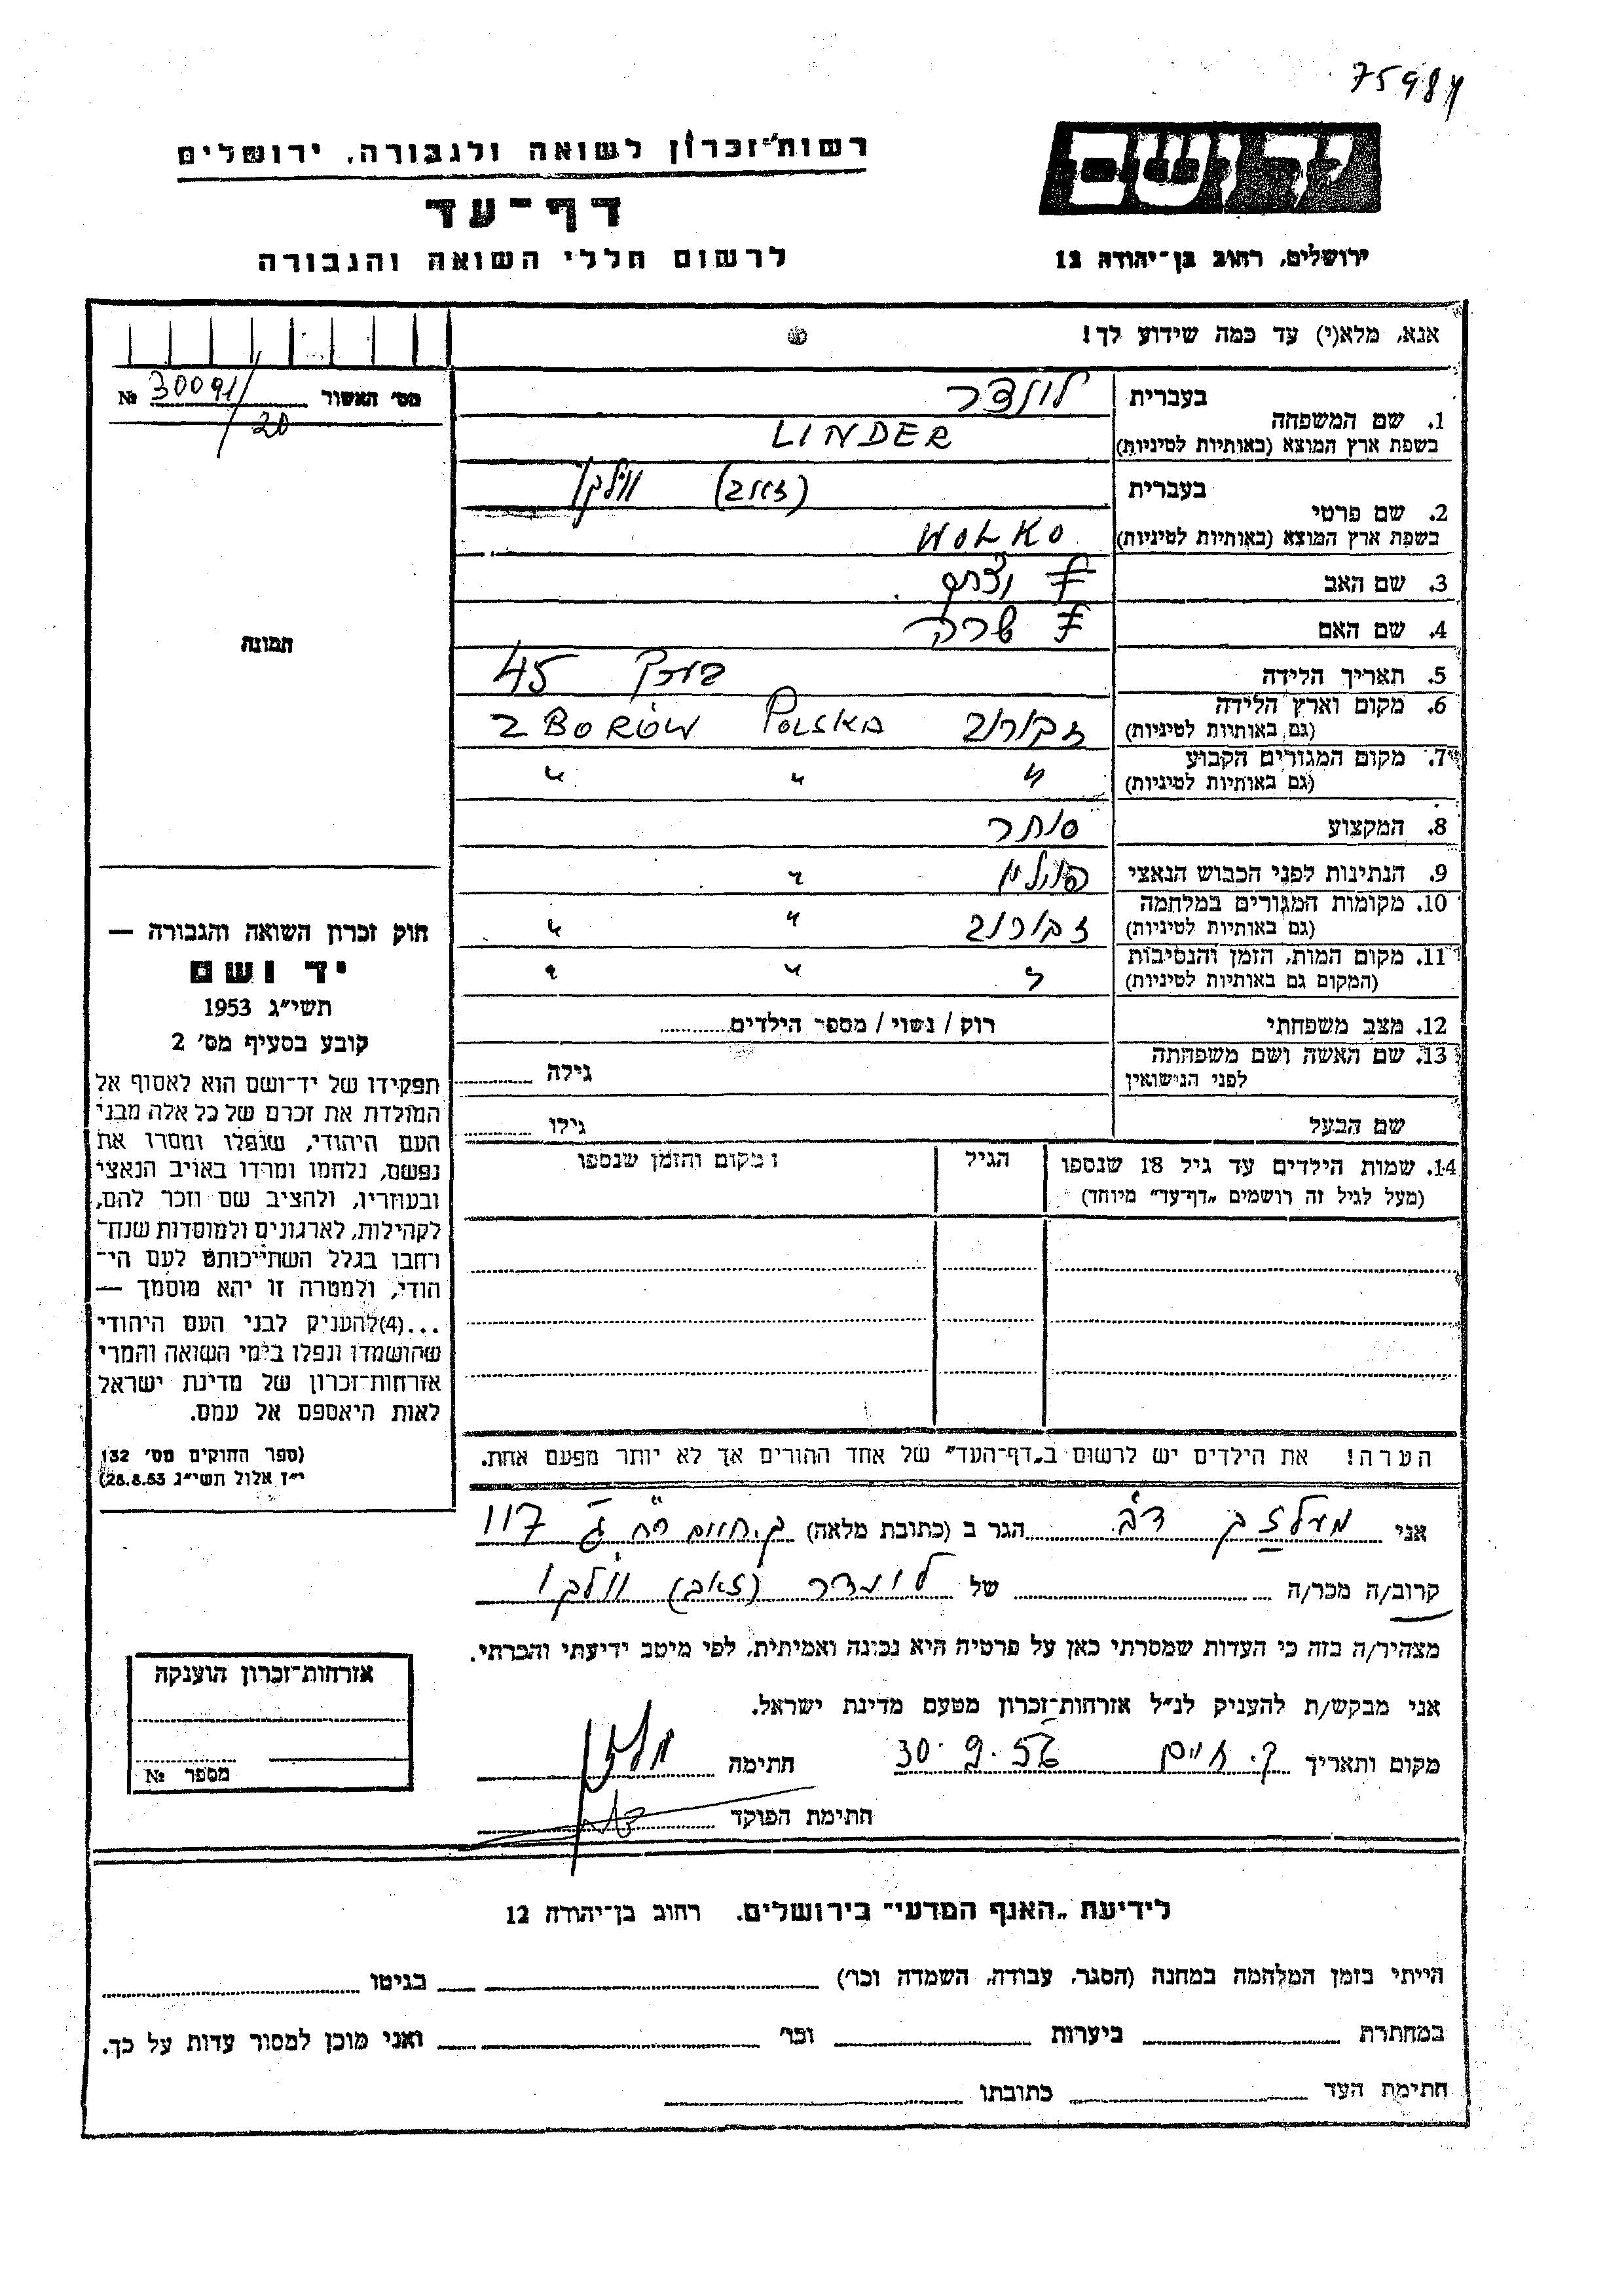 75984
יד ושם
רשות־זכרון לשואה ולגבורה, ירושלים
דף־עד
לרשום חללי השואה והגבורה
ירושלים, רחוב בן־יהודה 12
אנא, מלא(י) עד כמה שידוע לך!
מס׳ האשור 30091/20 №
1. שם המשפחה
בעברית
לינדר
בשפת ארץ המוצא (באותיות לטיניות)
LINDER
2. שם פרטי
בעברית
(זאב) וולקו
בשפת ארץ המוצא (באותיות לטיניות)
WOLKO
3. שם האב
4. שם האם שרה
5. תאריך הלידה 45
6. מקום וארץ הלידה
(גם באותיות לטיניות)
זבורוב POLSKA ZBORÓW
7. מקום המגורים הקבוע
(גם באותיות לטיניות)
" " "
8. המקצוע סוחר
9. הנתינות לפני הכבוש הנאצי פולין "
10. מקומות המגורים במלחמה
(גם באותיות לטיניות)
זבורוב " "
11. מקום המות, הזמן והנסיבות
(המקום גם באותיות לטיניות)
" " "
12. מצב משפחתי רוק / נשוי / מספר הילדים
13. שם האשה ושם משפחתה
לפני הנישואין
גילה
שם הבעל גילו
14. שמות הילדים עד גיל 18 שנספו
(מעל לגיל זה רושמים „דף־עד” מיוחד)
הגיל
מקום והזמן שנספו
הערה! את הילדים יש לרשום ב„דף־העד” של אחד ההורים אך לא יותר מפעם אחת.
תמונה
חוק זכרון השואה והגבורה —
יד ושם
תשי״ג 1953
קובע בסעיף מס׳ 2
תפקידו של יד־ושם הוא לאסוף אל
המולדת את זכרם של כל אלה מבני
העם היהודי, שנפלו ומסרו את
נפשם, נלחמו ומרדו באויב הנאצי
ובעוזריו, ולהציב שם וזכר להם,
לקהילות, לארגונים ולמוסדות שנח־
רחבו בגלל השתייכותם לעם הי־
הודי, ולמטרה זו יהא מוסמך —
...(4)להעניק לבני העם היהודי
שהושמדו ונפלו בימי השואה והמרי
אזרחות־זכרון של מדינת ישראל
לאות היאספם אל עמם.
(ספר החוקים מס׳ 132
י״ז אלול תשי״ג 28.8.53)
אני דב הגר ב (כתובת מלאה) ק. חיים 117
קרוב/ה מכר/ה של לינדר (זאב) וולקו
מצהיר/ה בזה כי העדות שמסרתי כאן על פרטיה היא נכונה ואמיתית, לפי מיטב ידיעתי והכרתי.
אני מבקש/ת להעניק לנ״ל אזרחות־זכרון מטעם מדינת ישראל.
מקום ותאריך ק. חיים 30.9.56 חתימה
חתימת הפוקד
אזרחות־זכרון הוענקה
מספר №
לידיעת „האגף המדעי” בירושלים. רחוב בן־יהודה 12
הייתי בזמן המלחמה במחנה (הסגר, עבודה, השמדה וכו׳) בגיטו
במחתרת ביערות וכו׳ ואני מוכן למסור עדות על כך.
חתימת העד כתובתו